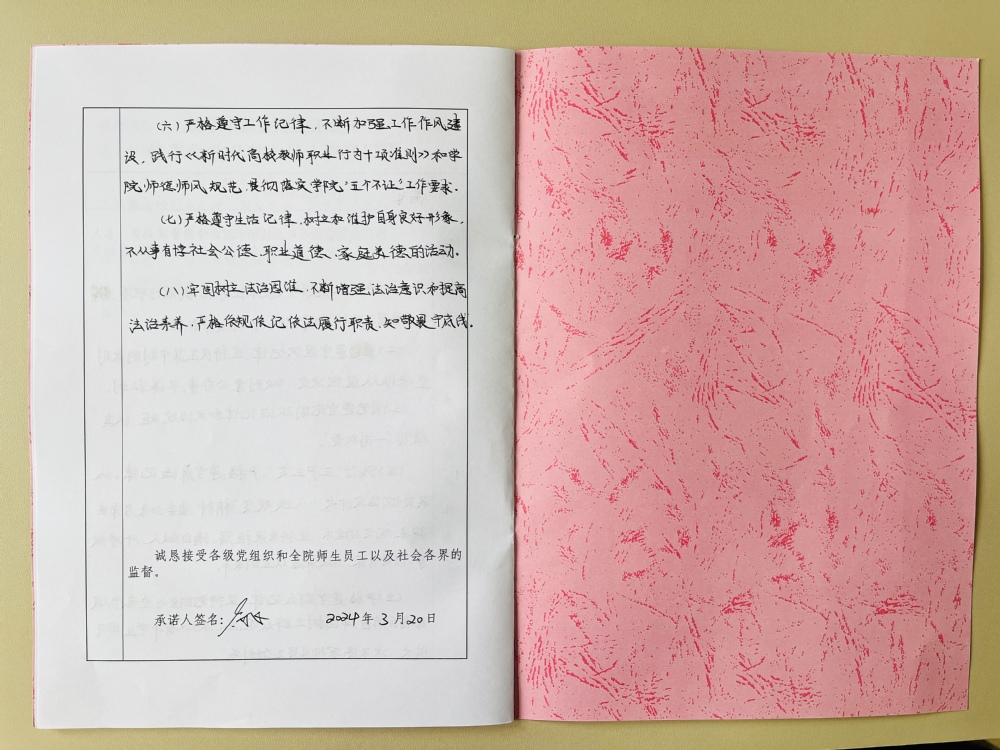 (六)严格遵守工作纪律，不断加强工作作风建
设，践行《新时代高校教师职业行为十项准则》和学
院师德师风规范，贯彻落实学院“五个不让”工作要求．
(七)严格遵守生活纪律，树立和维护自身良好形象，
不从事有悖社会公德、职业道德、家庭美德的活动．
(八)牢固树立法治思维，不断增强法治意识和提高
法治素养，严格依规依纪依法履行职责，知敬畏守底线．
诚恳接受各级党组织和全院师生员工以及社会各界的
监督。
承诺人签名： 2024年3月20日